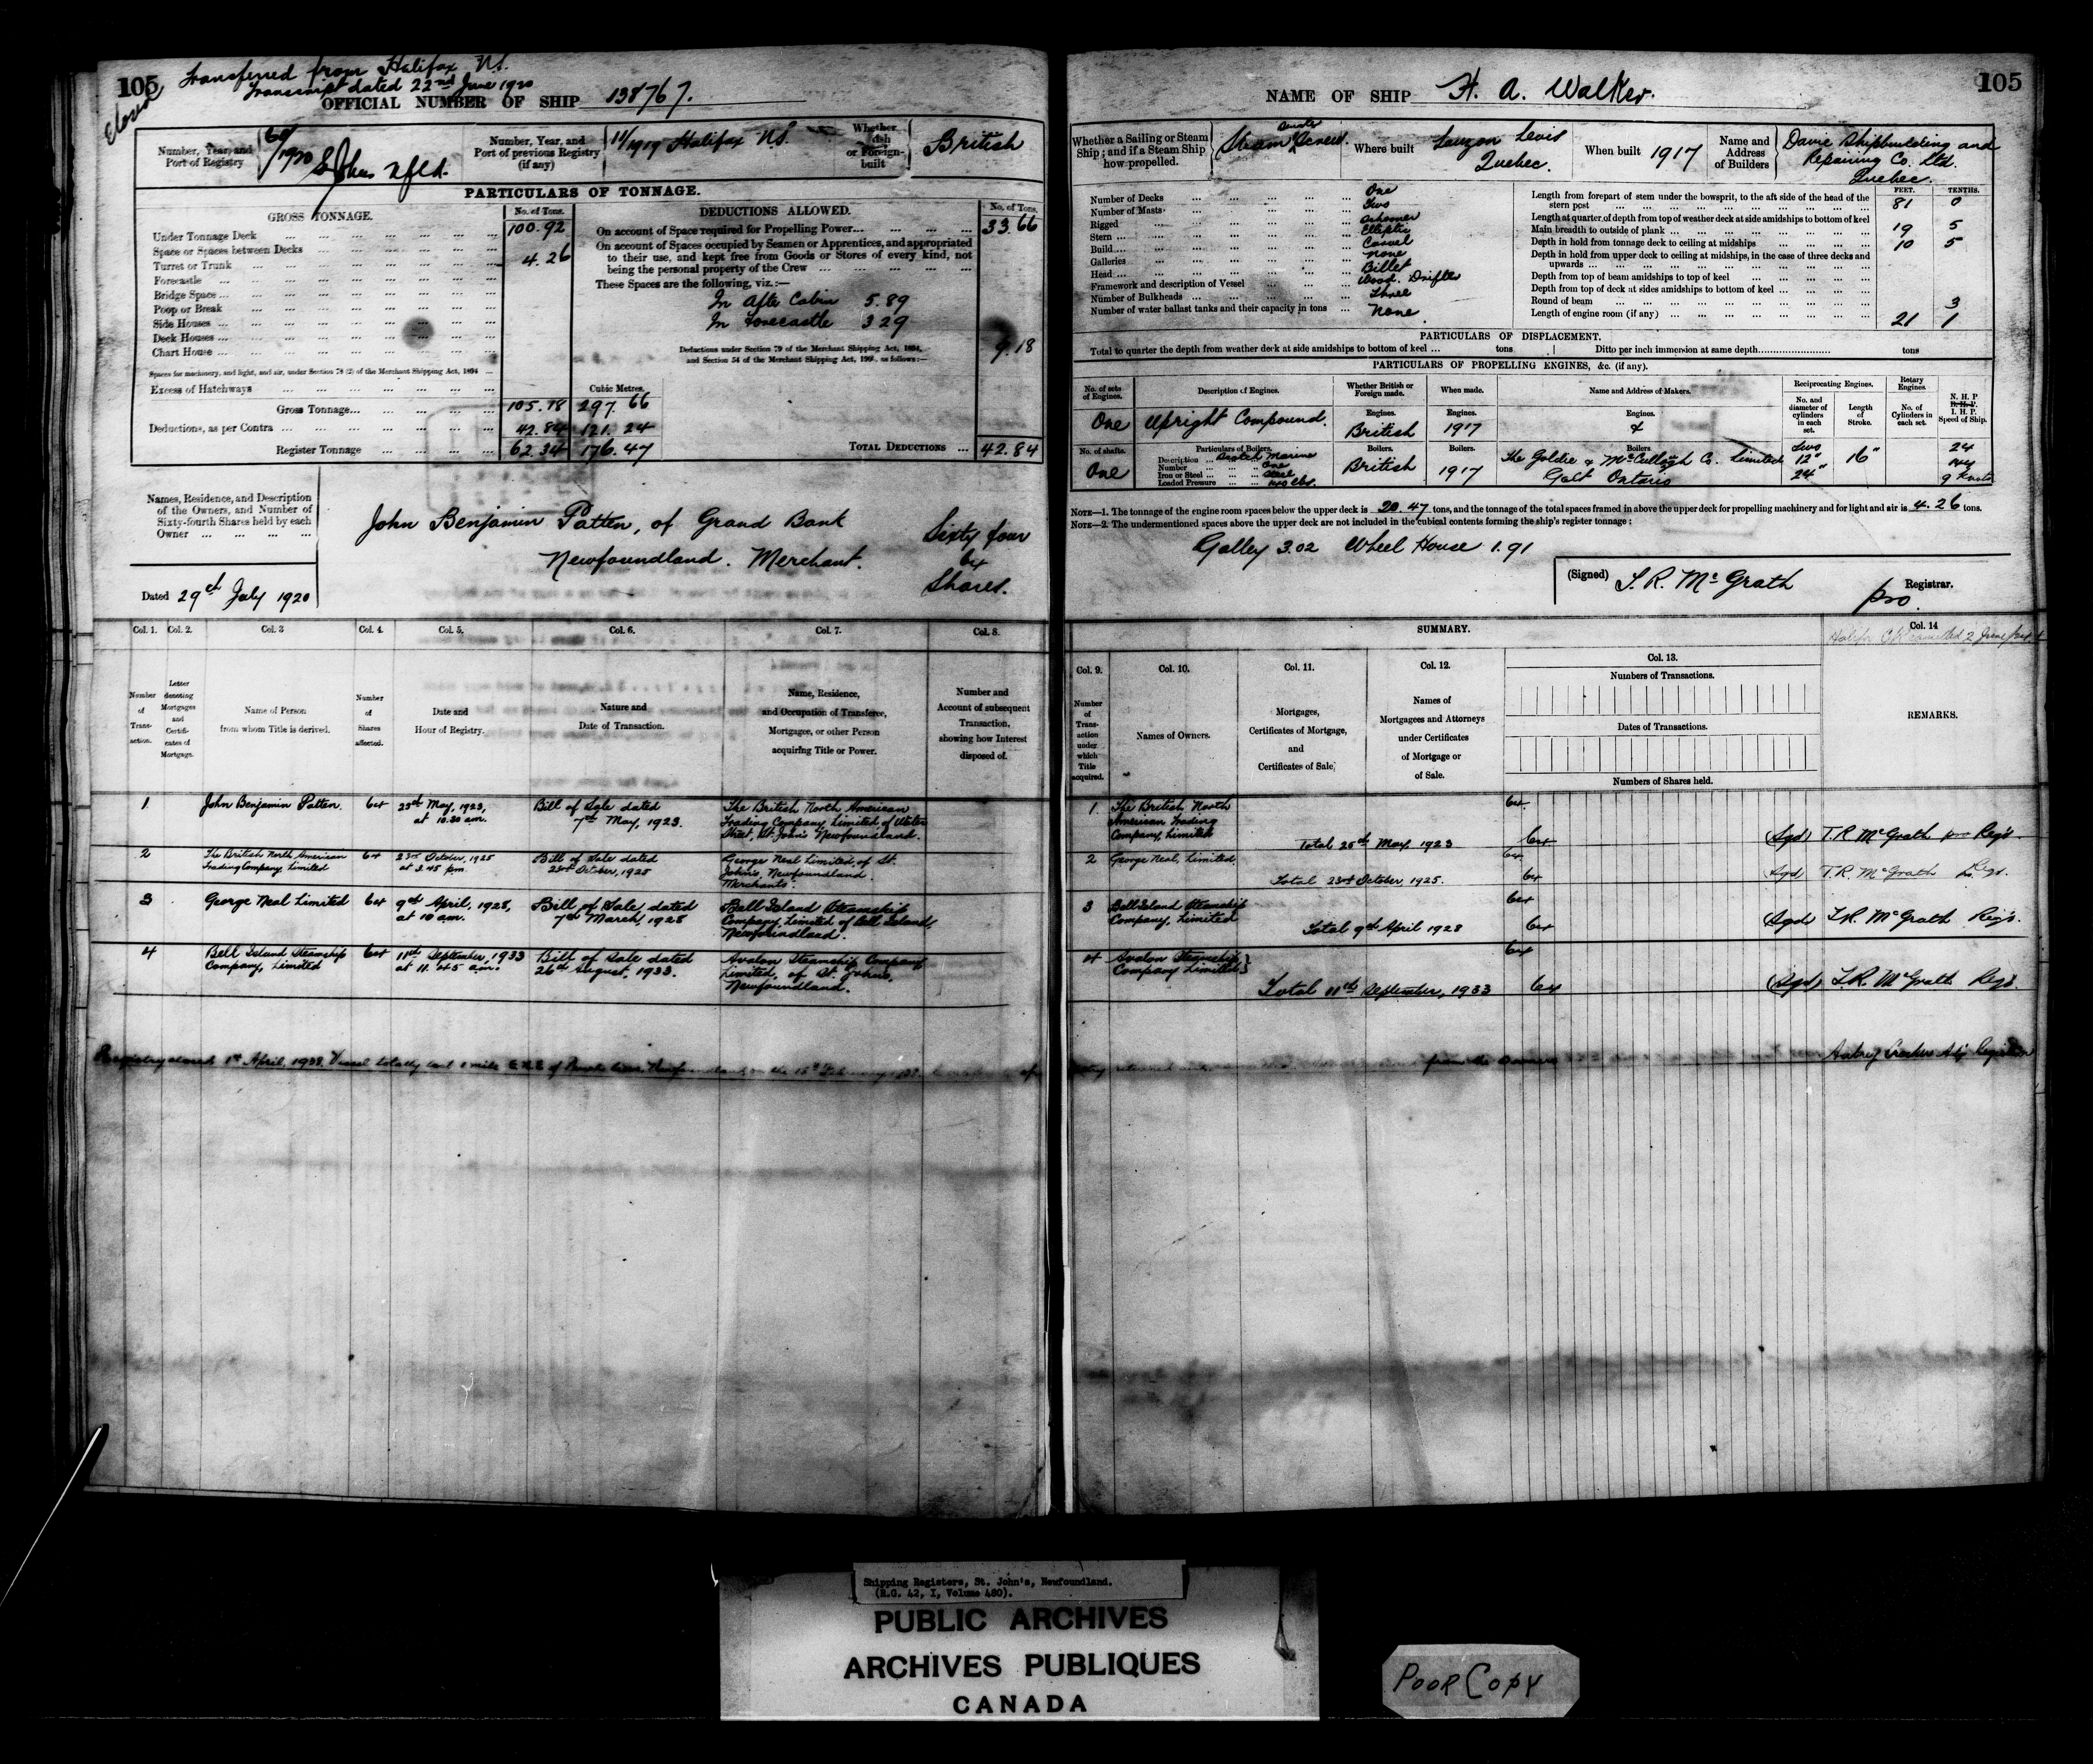 105
Transferred from Halifax N.S.
Transcript dated 22nd June 1920
Closed
OFFICIAL NUMBER OF SHIP 138767.
Number, Year, and Port of Registry
/1920 St Johns Nfld.
Number, Year, and Port of previous Registry (if any)
11/1919 Halifax N.S.
Whether British or Foreign-built
British
PARTICULARS OF TONNAGE.
GROSS TONNAGE.
No. of Tons.
Under Tonnage Deck ... 100.92
Space or Spaces between Decks
Turret or Trunk ... 4.26
Forecastle
Bridge Space ...
Poop or Break
Side Houses ...
Deck Houses ...
Chart House ...
Spaces for machinery, and light, and air, under Section 78 (2) of the Merchant Shipping Act, 1894 ...
Excess of Hatchways
Cubic Metres.
Gross Tonnage... 105.18 297.66
Deductions, as per Contra ... 42.84 121.24
Register Tonnage ... 62.34 176.47
DEDUCTIONS ALLOWED.
No. of Tons.
On account of Space required for Propelling Power... 33.66
On account of Spaces occupied by Seamen or Apprentices, and appropriated
to their use, and kept free from Goods or Stores of every kind, not
being the personal property of the Crew ...
These Spaces are the following, viz.:—
In After Cabin 5.89
In Forecastle 3 29
9.18
Deductions under Section 79 of the Merchant Shipping Act, 1894,
and Section 54 of the Merchant Shipping Act, 1906, as follows:—
TOTAL DEDUCTIONS ... 42.84
Names, Residence, and Description
of the Owners, and Number of
Sixty-fourth Shares held by each
Owner ...
John Benjamin Patten, of Grand Bank
Newfoundland. Merchant.
Sixty four
64
Shares.
Dated 29th July 1920
Col. 1. Col. 2. Col. 3 Col. 4. Col. 5. Col. 6. Col. 7. Col. 8.
Number of Transaction.
Letter denoting Mortgages and Certificates of Mortgage.
Name of Person from whom Title is derived.
Number of Shares affected.
Date and Hour of Registry.
Nature and Date of Transaction.
Name, Residence, and Occupation of Transferee, Mortgagee, or other Person acquiring Title or Power.
Number and Account of subsequent Transaction, showing how Interest disposed of.
1 John Benjamin Patten. 64 25th May, 1923, at 10.30 am. Bill of Sale dated 7th May, 1923. The British North American Trading Company Limited of Water Street, St. John's Newfoundland.
2 The British North American Trading Company Limited 64 23rd October, 1925 at 3.45 pm. Bill of Sale dated 23rd October, 1925 George Neal Limited, of St. John's, Newfoundland. Merchants.
3 George Neal Limited 64 9th April, 1928, at 10 am. Bill of Sale dated 7th March, 1928 Bell Island Steamship Company, Limited of Bell Island, Newfoundland.
4 Bell Island Steamship Company, Limited 64 11th September, 1933 at 11.45 a.m. Bill of Sale dated 26th August, 1933. Avalon Steamship Company Limited, of St. John's, Newfoundland.
Registry closed 1st April, 1938. Vessel totally lost
NAME OF SHIP H. A. Walker.
105
Whether a Sailing or Steam Ship; and if a Steam Ship how propelled.
Steam Screw.
Where built
Lauzon Levis Quebec.
When built 1917
Name and Address of Builders
Davie Shipbuilding and Repairing Co. Ltd. Quebec.
Number of Decks ... One
Number of Masts ... Two
Rigged ... Schooner
Stern ... Elliptic
Build ... Carvel
Galleries ... None
Head ... Billet
Framework and description of Vessel ... Wood. Drifter
Number of Bulkheads ... Three
Number of water ballast tanks and their capacity in tons ... None
FEET. TENTHS.
Length from forepart of stem under the bowsprit, to the aft side of the head of the stern post ... 81 0
Length at quarter of depth from top of weather deck at side amidships to bottom of keel
Main breadth to outside of plank ... 19 5
Depth in hold from tonnage deck to ceiling at midships ... 10 5
Depth in hold from upper deck to ceiling at midships, in the case of three decks and upwards ...
Depth from top of beam amidships to top of keel
Depth from top of deck at sides amidships to bottom of keel ...
Round of beam ... 3
Length of engine room (if any) ... 21 1
PARTICULARS OF DISPLACEMENT.
Total to quarter the depth from weather deck at side amidships to bottom of keel ... tons Ditto per inch immersion at same depth... tons
PARTICULARS OF PROPELLING ENGINES, &c. (if any).
No. of sets of Engines.
Description of Engines.
Whether British or Foreign made.
When made.
Name and Address of Makers.
Reciprocating Engines.
Rotary Engines.
No. and diameter of cylinders in each set.
Length of Stroke.
No. of Cylinders in each set.
N. H. P
I. H. P.
Speed of Ship.
One Upright Compound.
Engines. British
Engines. 1917
Engines. &
No. of shafts. One
Particulars of Boilers.
Description ... Scotch Marine
Number ... One
Iron or Steel ... Steel
Loaded Pressure ... 140 lbs.
Boilers. British
Boilers. 1917
Boilers
The Goldie & McCullogh Co. Limited
Galt Ontario
Two 12" 24"
16"
24
9 Knots
NOTE—1. The tonnage of the engine room spaces below the upper deck is 20.47 tons, and the tonnage of the total spaces framed in above the upper deck for propelling machinery and for light and air is 4.26 tons.
NOTE—2. The undermentioned spaces above the upper deck are not included in the cubical contents forming the ship's register tonnage:
Galley 3.02 Wheel House 1.91
(Signed) T. R. McGrath pro. Registrar.
SUMMARY.
Col. 9. Col. 10. Col. 11. Col. 12. Col. 13. Col. 14
Number of Transaction under which Title acquired.
Names of Owners.
Mortgages, Certificates of Mortgage, and Certificates of Sale.
Names of Mortgagees and Attorneys under Certificates of Mortgage or of Sale.
Numbers of Transactions.
Dates of Transactions.
Numbers of Shares held.
REMARKS.
1. The British North American Trading Company, Limited 64
Total 25th May 1923 64 (Sgd) T.R. McGrath pro Regr.
2 George Neal, Limited. 64
Total 23rd October, 1925. 64 Sgd T.R. McGrath Regr.
3 Bell Island Steamship Company, Limited 64
Total 9th April 1928 64 (Sgd) T.R. McGrath Regr.
4 Avalon Steamship Company Limited 64
Total 11th September, 1933 64 (Sgd) T.R. McGrath Regr.
from the Owners
Shipping Registers, St. John's, Newfoundland.
(R.G. 42, I, Volume 480).
PUBLIC ARCHIVES
ARCHIVES PUBLIQUES
CANADA
POOR COPY